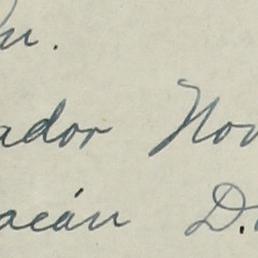 ador Nov
acán D.